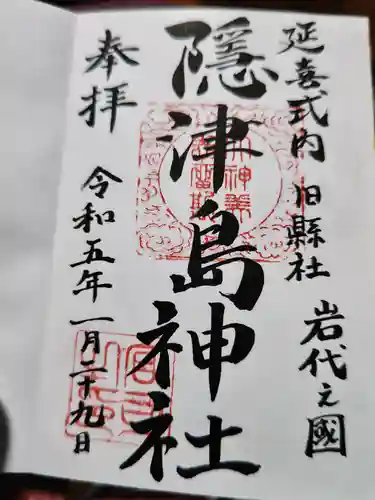 延喜式内 旧縣社 岩代之國
隠津島神社
奉拝 令和五年一月二十九日